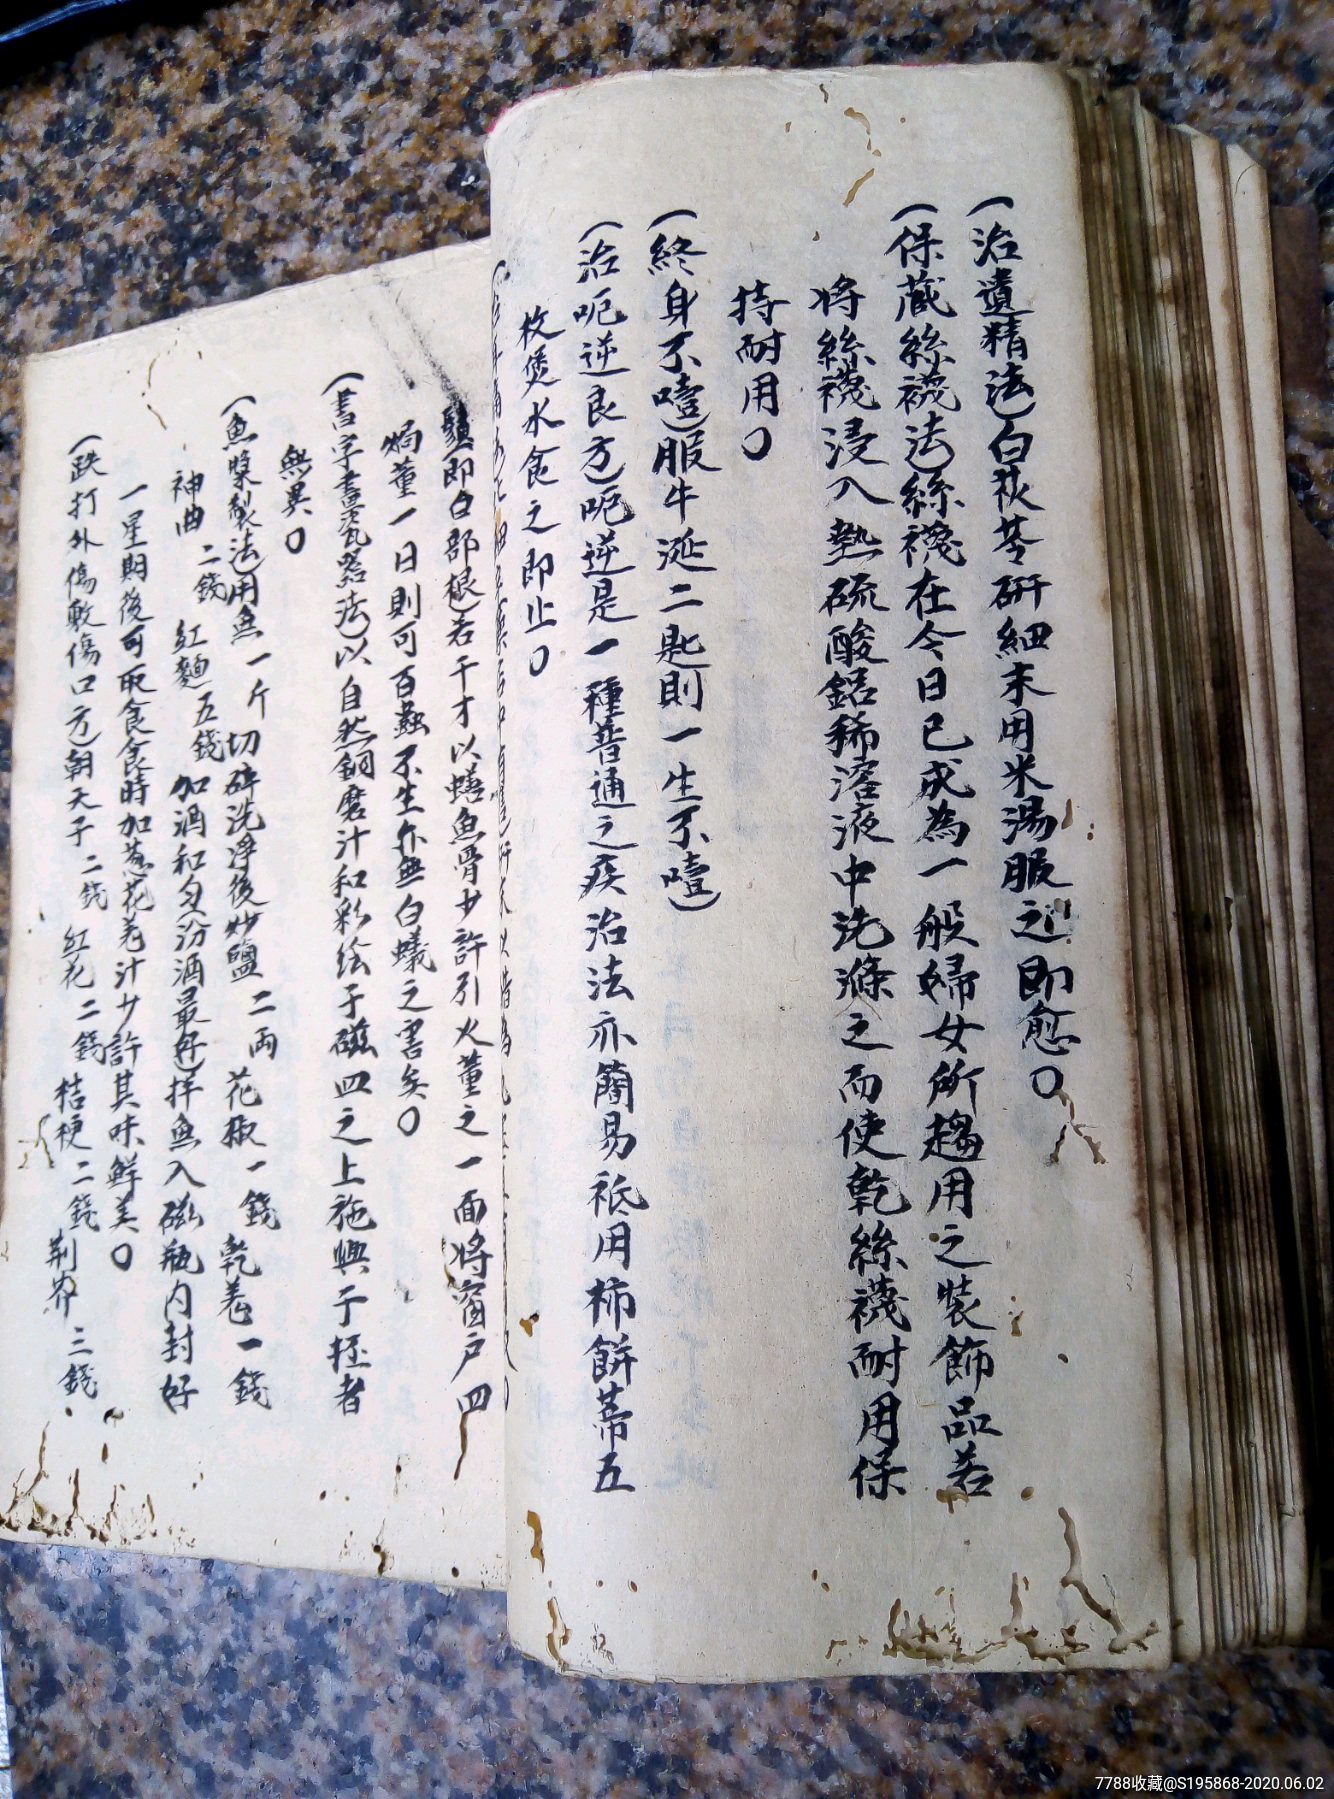 (治遺精法)白茯苓研細末用米湯服之即愈〇
(保蔵絲襪法絲襪在今日已成為一般婦女所趨用之裝飾品若
将絲襪浸入熱硫酸鋁稀溶液中洗滌之而使乾絲襪耐用保
持耐用〇
(終身不噎)服牛涎二匙則一生不噎)
(治呃逆良方)呃逆是一種普通之疾治法亦簡易祗用柿餅蒂五
枚煲水食之即止〇
即白部根)若干才以蟮魚骨少許引火薰之一面将窗户四
焗薰一日則可百蟲不生亦無白蟻之害矣〇
(書字畫瓷器法)以自然銅磨汁和彩绘于磁四之上施與于輊者
無異〇
(魚漿製法)用魚一斤切碎洗淨後炒鹽二両花椒一錢乾姜一錢
神曲二錢紅麵五錢加酒和匀汾酒最好)拌魚入磁瓶内封好
一星期後可取食食時加葱花羌汁少許其味鮮美〇
(跌打外傷敷傷口方)朝天子二錢紅花二錢桔梗二錢荆芥三錢
7788收藏@S195868-2020.06.02